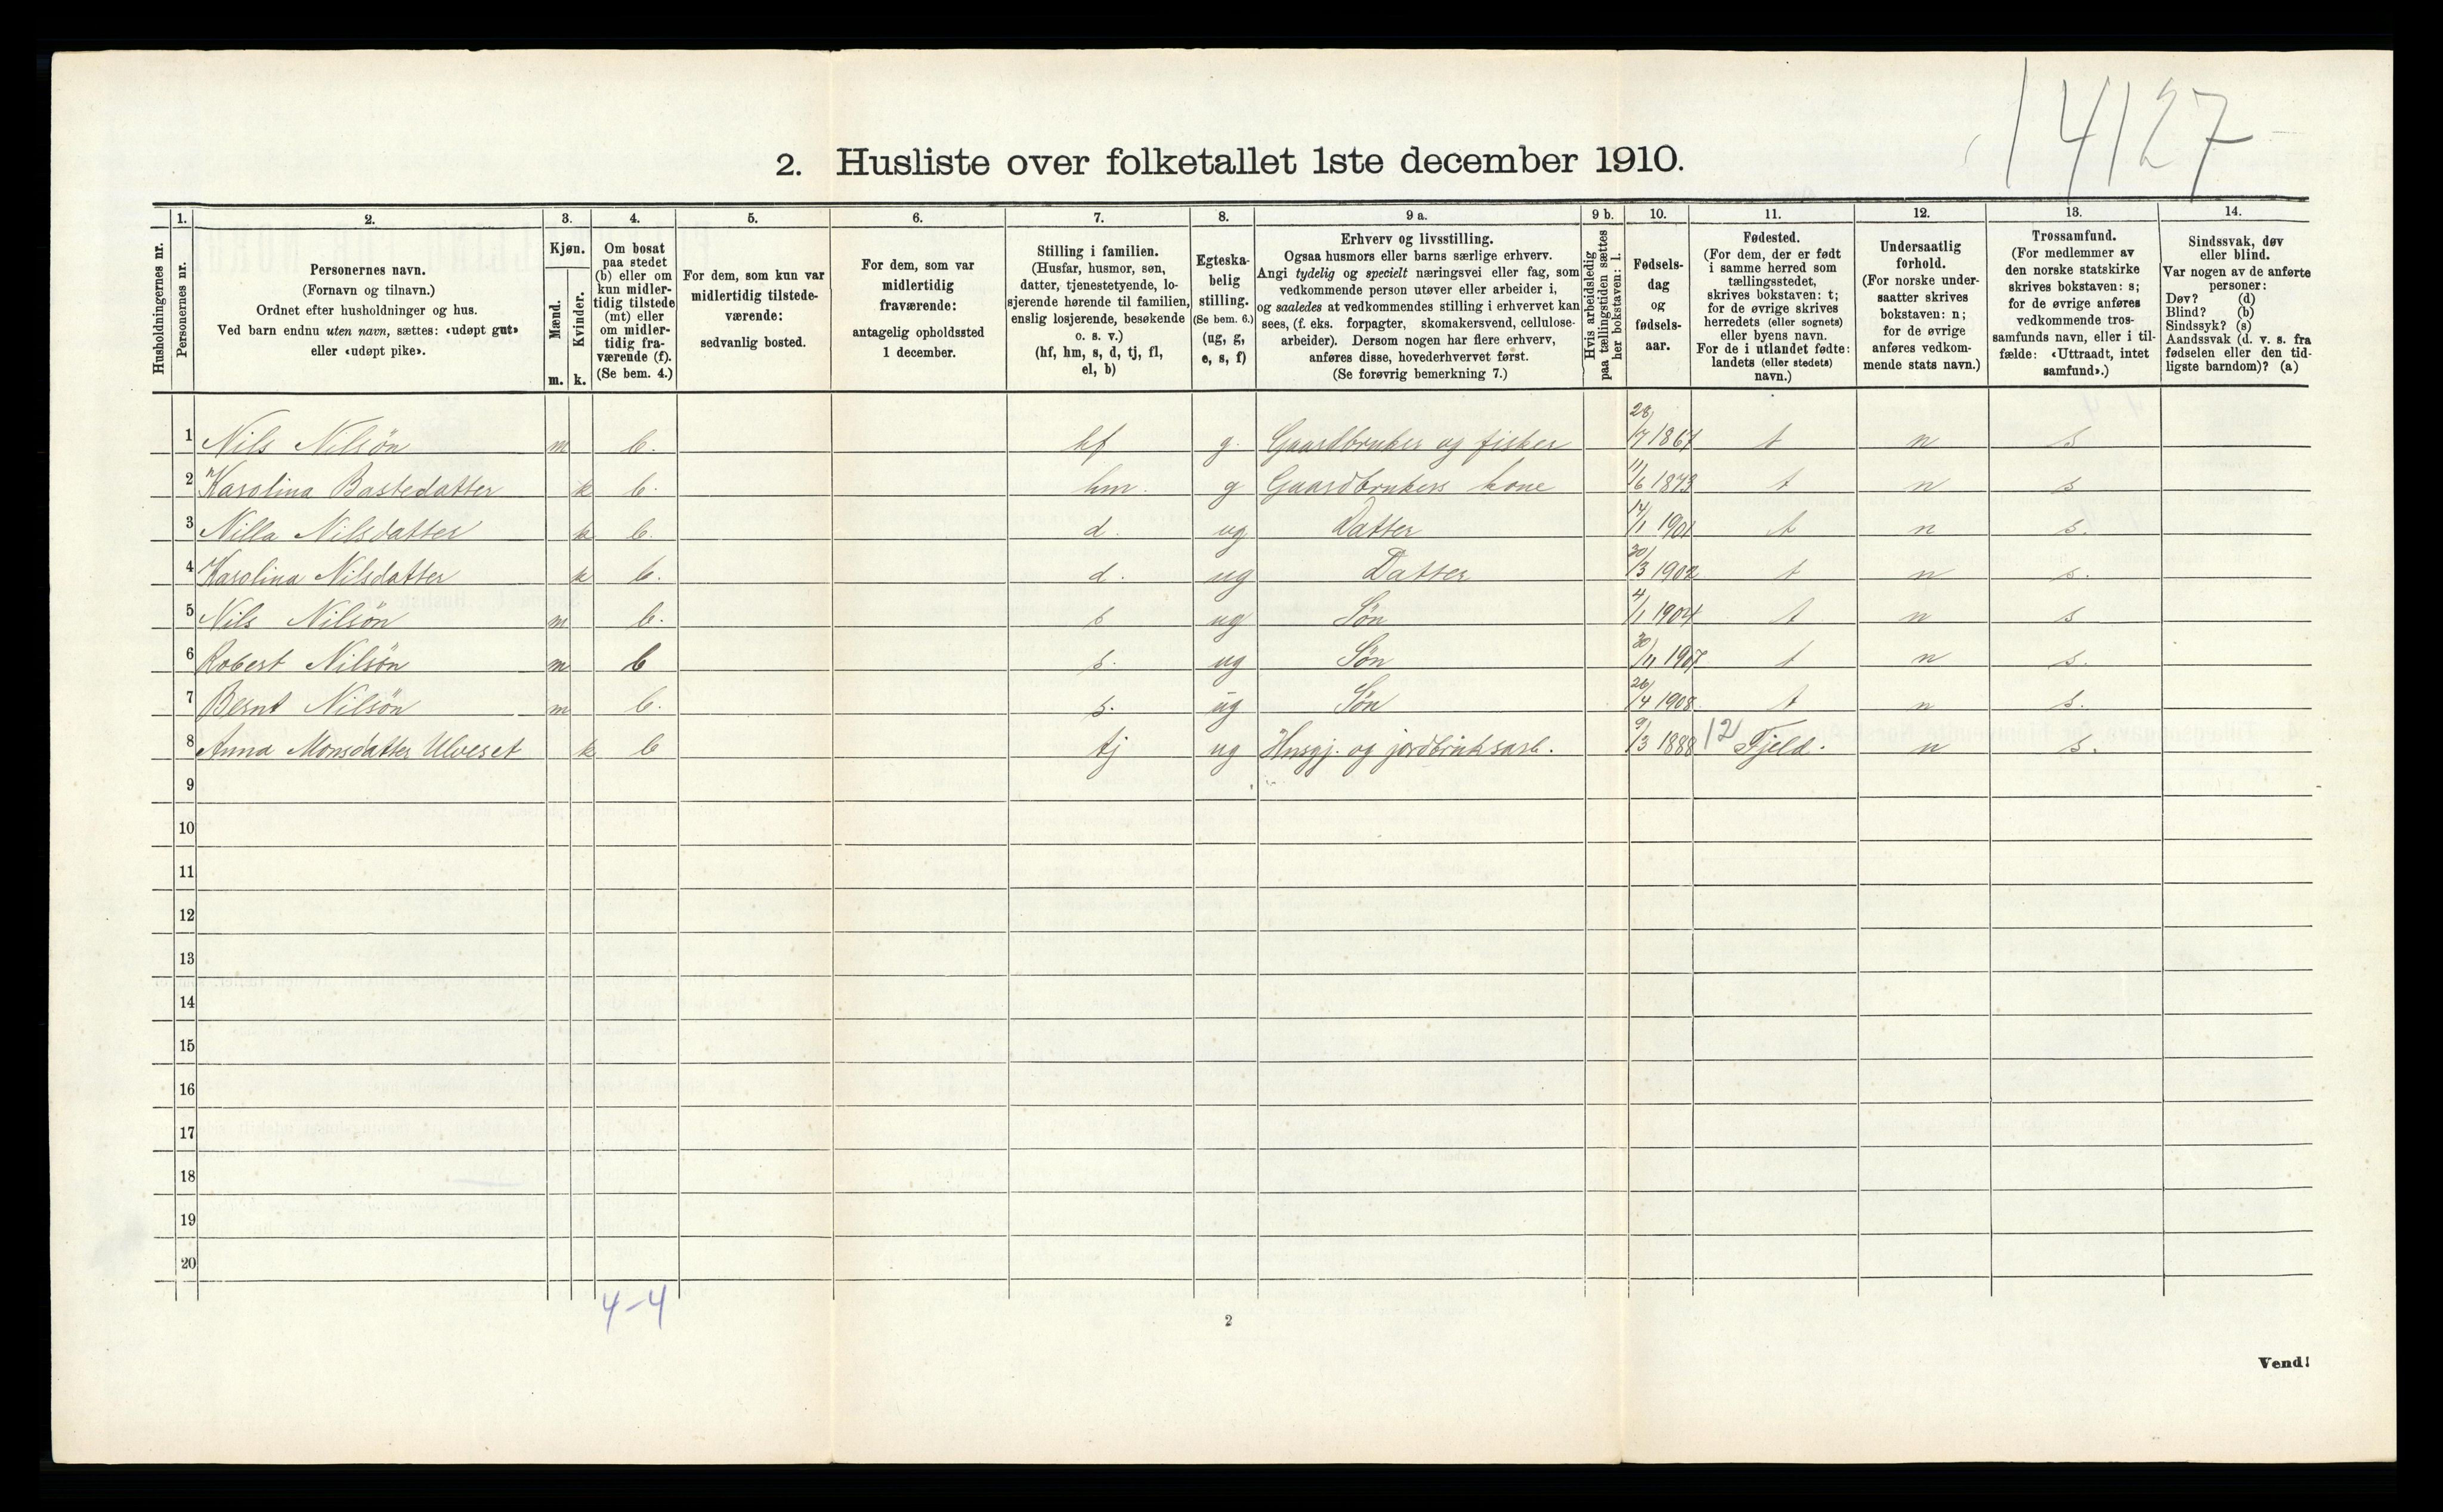 14127
2. Husliste over folketallet 1ste december 1910.
Husholdningernes nr.
1.
Personernes nr.
2.
Personernes navn.
(Fornavn og tilnavn.)
Ordnet efter husholdninger og hus.
Ved barn endnu uten navn, sættes: «udøpt gut»
eller «udøpt pike».
3.
Kjøn.
Mænd.
Kvinder.
m. k.
4.
Om bosat
paa stedet
(b) eller om
kun midler-
tidig tilstede
(mt) eller
om midler-
tidig fra-
værende (f).
(Se bem. 4.)
5.
For dem, som kun var
midlertidig tilstede-
værende:
sedvanlig bosted.
6.
For dem, som var
midlertidig
fraværende:
antagelig opholdssted
1 december.
7.
Stilling i familien.
(Husfar, husmor, søn,
datter, tjenestetyende, lo-
sjerende hørende til familien,
enslig losjerende, besøkende
o. s. v.)
(hf, hm, s, d, tj, fl,
el, b)
8.
Egteska-
belig
stilling.
(Se bem. 6.)
(ug, g,
e, s, f)
9 a.
Erhverv og livsstilling.
Ogsaa husmors eller barns særlige erhverv.
Angi tydelig og specielt næringsvei eller fag, som
vedkommende person utøver eller arbeider i,
og saaledes at vedkommendes stilling i erhvervet kan
sees, (f. eks. forpagter, skomakersvend, cellulose-
arbeider). Dersom nogen har flere erhverv,
anføres disse, hovederhvervet først.
(Se forøvrig bemerkning 7.)
9 b.
Hvis arbeidsledig
paa tællingstiden sættes
her bokstaven: l.
10.
Fødsels-
dag
og
fødsels-
aar.
11.
Fødested.
(For dem, der er født
i samme herred som
tællingsstedet,
skrives bokstaven: t;
for de øvrige skrives
herredets (eller sognets)
eller byens navn.
For de i utlandet fødte:
landets (eller stedets)
navn.)
12.
Undersaatlig
forhold.
(For norske under-
saatter skrives
bokstaven: n;
for de øvrige
anføres vedkom-
mende stats navn.)
13.
Trossamfund.
(For medlemmer av
den norske statskirke
skrives bokstaven: s;
for de øvrige anføres
vedkommende tros-
samfunds navn, eller i til-
fælde: «Uttraadt, intet
samfund».)
14.
Sindssvak, døv
eller blind.
Var nogen av de anførte
personer:
Døv? (d)
Blind? (b)
Sindssyk? (s)
Aandssvak (d. v. s. fra
fødselen eller den tid-
ligste barndom)? (a)
1 Nils Nilsön m b. hf g. Gaardbruker og fisker 28/7 1867 t n s
2 Karolina Bastedatter k b. hm. g Gaardbrukers kone 11/6 1873 t n s
3 Nilla Nilsdatter k b. d. ug Datter 14/1 1901 t n s.
4 Karolina Nilsdatter k b. d. ug Datter 30/3 1902 t n s.
5 Nils Nilsön m b. s ug Søn 4/1 1904 t n s
6 Robert Nilsön m b s. ug Søn 30/11 1907 t n s.
7 Bernt Nilsön m b. s. ug Søn 26/4 1908. t n s.
8 Anna Monsdatter Ulveset k b tj ug Husgj. og jordbruksarb. 9/3 1888 12 Fjeld. n s.
9
10
11
12
13
14
15
16
17
18
19
20
4-4
2
Vend!